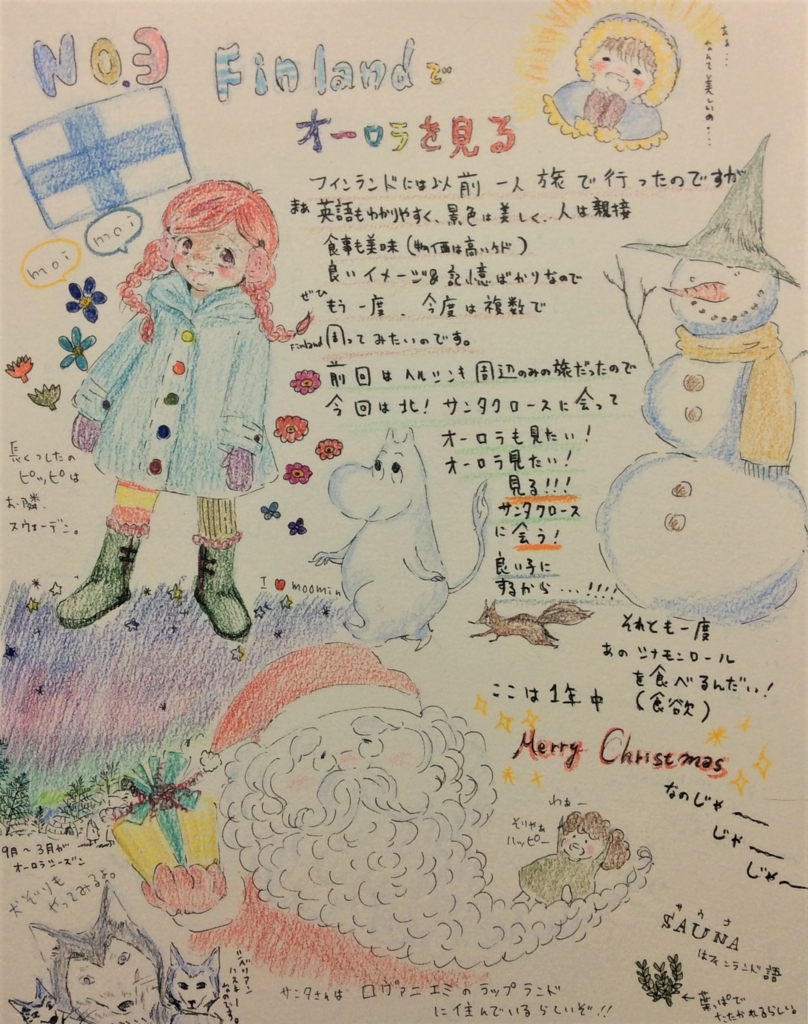 NO.3 Finlandで
オーロラを見る
ああ...
なんて美しいの...
moi
moi
フィンランドには以前一人旅で行ったのですが
まぁ英語もわかりやすく、景色は美しく、人は親接
食事も美味(物価は高いケド)
良いイメージ&記憶ばかりなので
ぜひ
もう一度、今度は複数で
Finland周ってみたいのです。
前回はヘルシンキ周辺のみの旅だったので
今回は北!サンタクロースに会って
オーロラも見たい!
オーロラ見たい!
見る!!!
サンタクロース
に会う!
良い子に
するから...!!!!
長くつしたの
ピッピは
お隣
スウェーデン。
I ♥ moomin
それとも一度
あのシナモンロール
を食べるんだい!
(食欲)
ここは1年中
Merry Christmas
なのじゃ〜
じゃ〜
じゃ〜
わぁー
そりゃぁ
ハッピー
9月〜3月が
オーロラシーズン
犬ぞりも
やってみるよ。
シベリアン
ハスキー
なのです。
サウナ
SAUNA
はフィンランド語
←葉っぱで
たたかれるらしい。
サンタさんはロヴァニエミのラップランド
に住んでいるらしいぞ!!